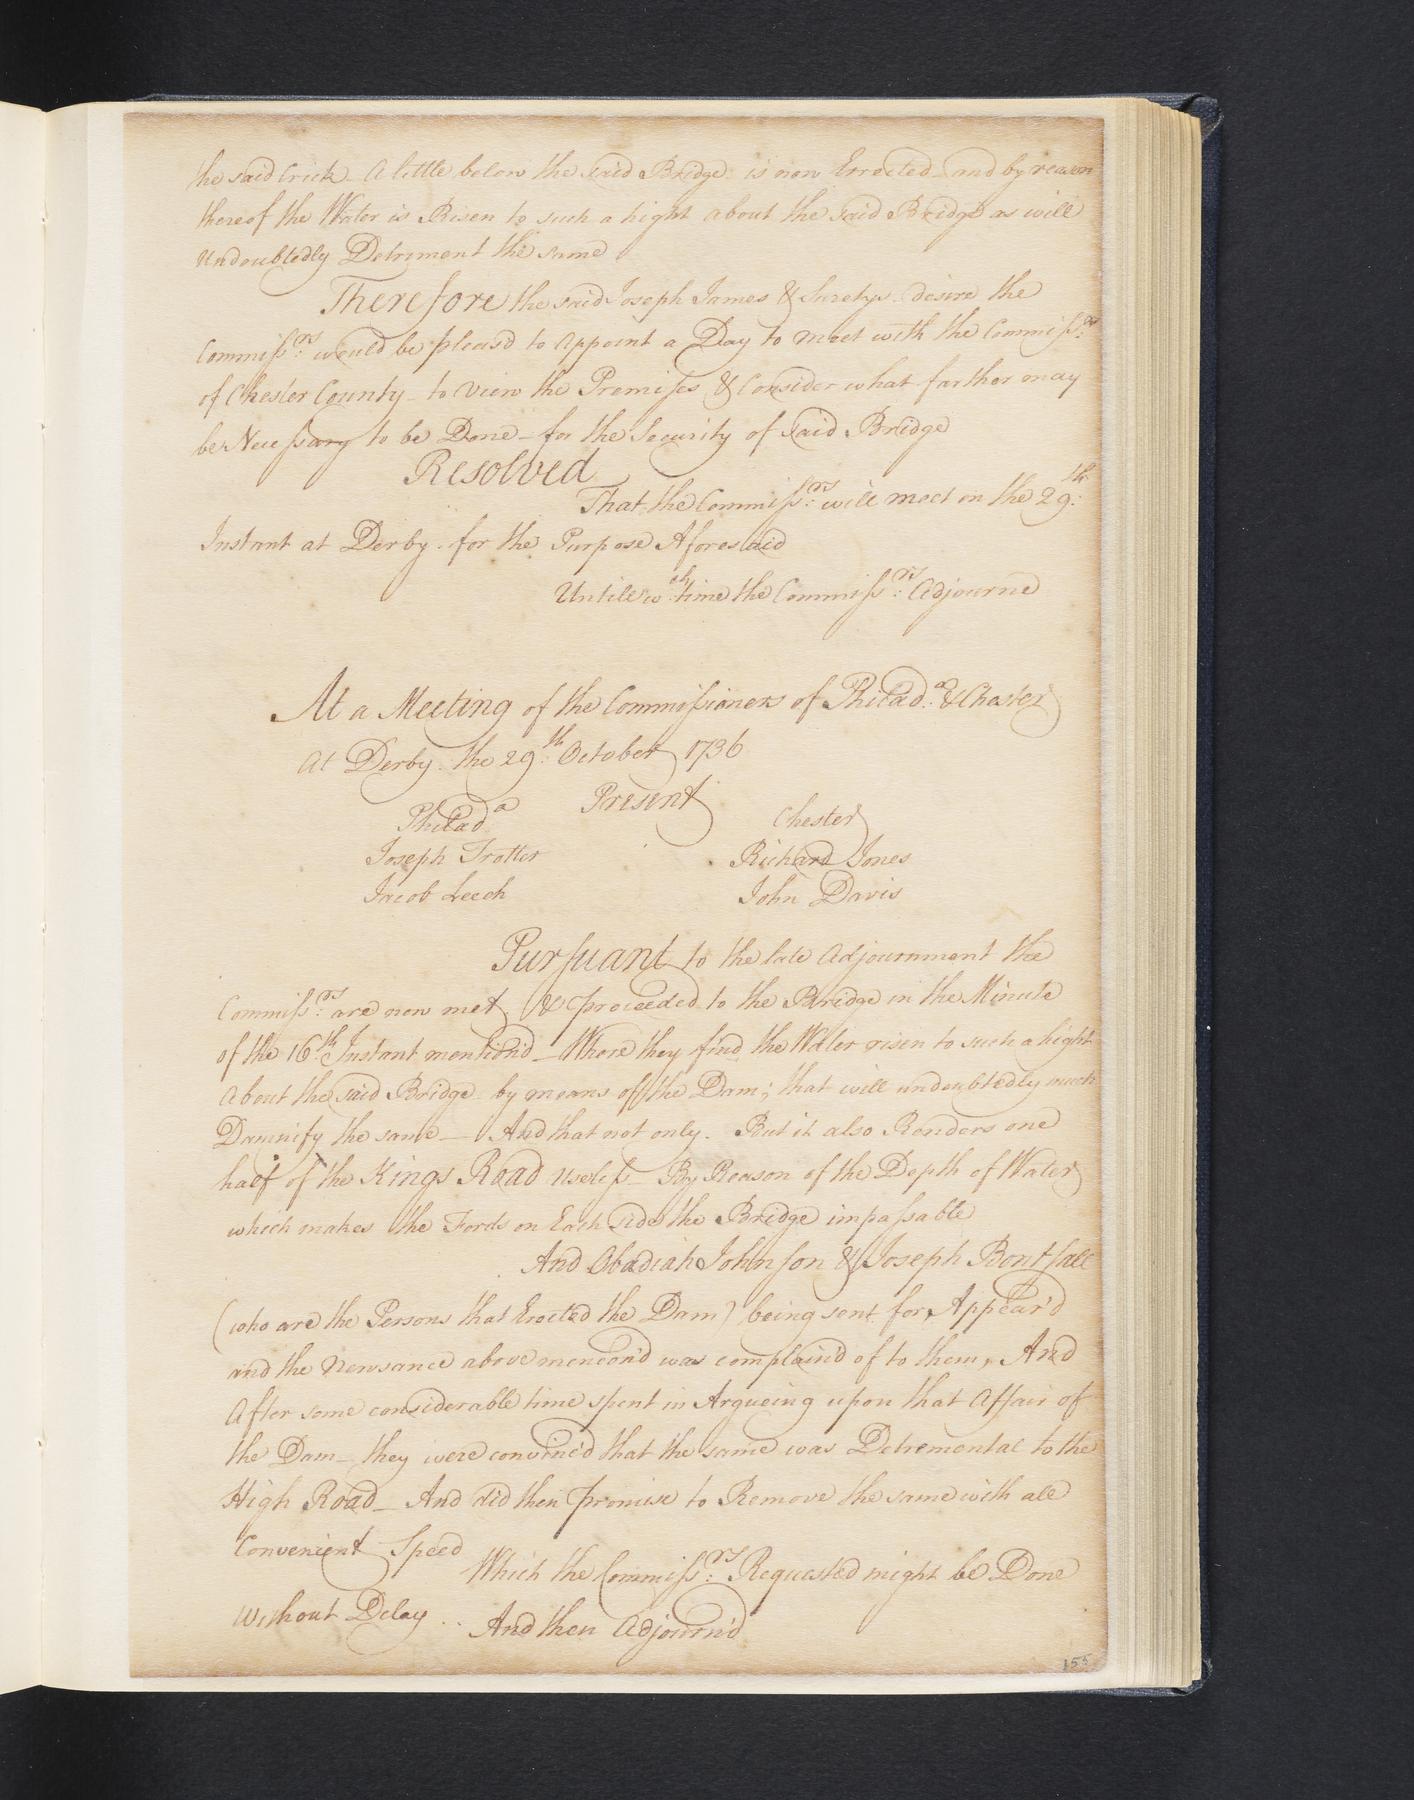 the said Crick A little below the said Bridge is now Errected and by reason
thereof the Water is Risen to such a hight about the said Bridge as will
Undoubtedly Detriment the same
Therefore the said Joseph James & Suretys desire the
Commissrs: would be pleasd to appoint a Day to meet with the Commissrs:
of Chester County to View the Premisses & Consider what farther may
be Necessary to be Done for the Security of said Bridge
Resolved
That the Commissrs: will meet on the 29th:
Instant at Derby for the Purpose Aforesaid
Untill wch time the Commissrs: Adjourne
At a Meeting of the Commissioners of Philada: & Chester
At Derby the 29th: October 1736
Present
Philada
Chester
Joseph Trotter
Richard Jones
Jacob Leech
John Davis
Pursuant to the late Adjournment the
Commissrs: are now met & proceeded to the Bridge in the Minute
of the 16th: Instant mention'd Where they find the Water risen to such a hight
About the said Bridge by means off the Dam; that will undoubtedly much
Damnify the same And that not only. But it also Renders one
half of the Kings Road Useless By Reason of the Depth of Water
which makes the Fords on Each side the Bridge impassable
And Obadiah Johnson & Joseph Bontsall
(who are the Persons that Erected the Dam) being sent for, Appear'd
and the Newsance above mencon'd was complain'd of to them, And
After some considerable time spent in Argueing upon that Affair of
the Dam they were convinc'd that the same was Detremental to the
High Road And did then promise to Remove the same with all
Convenient Speed
Which the Commissrs: Requested might be Done
Without Delay . . And then Adjourn'd
155